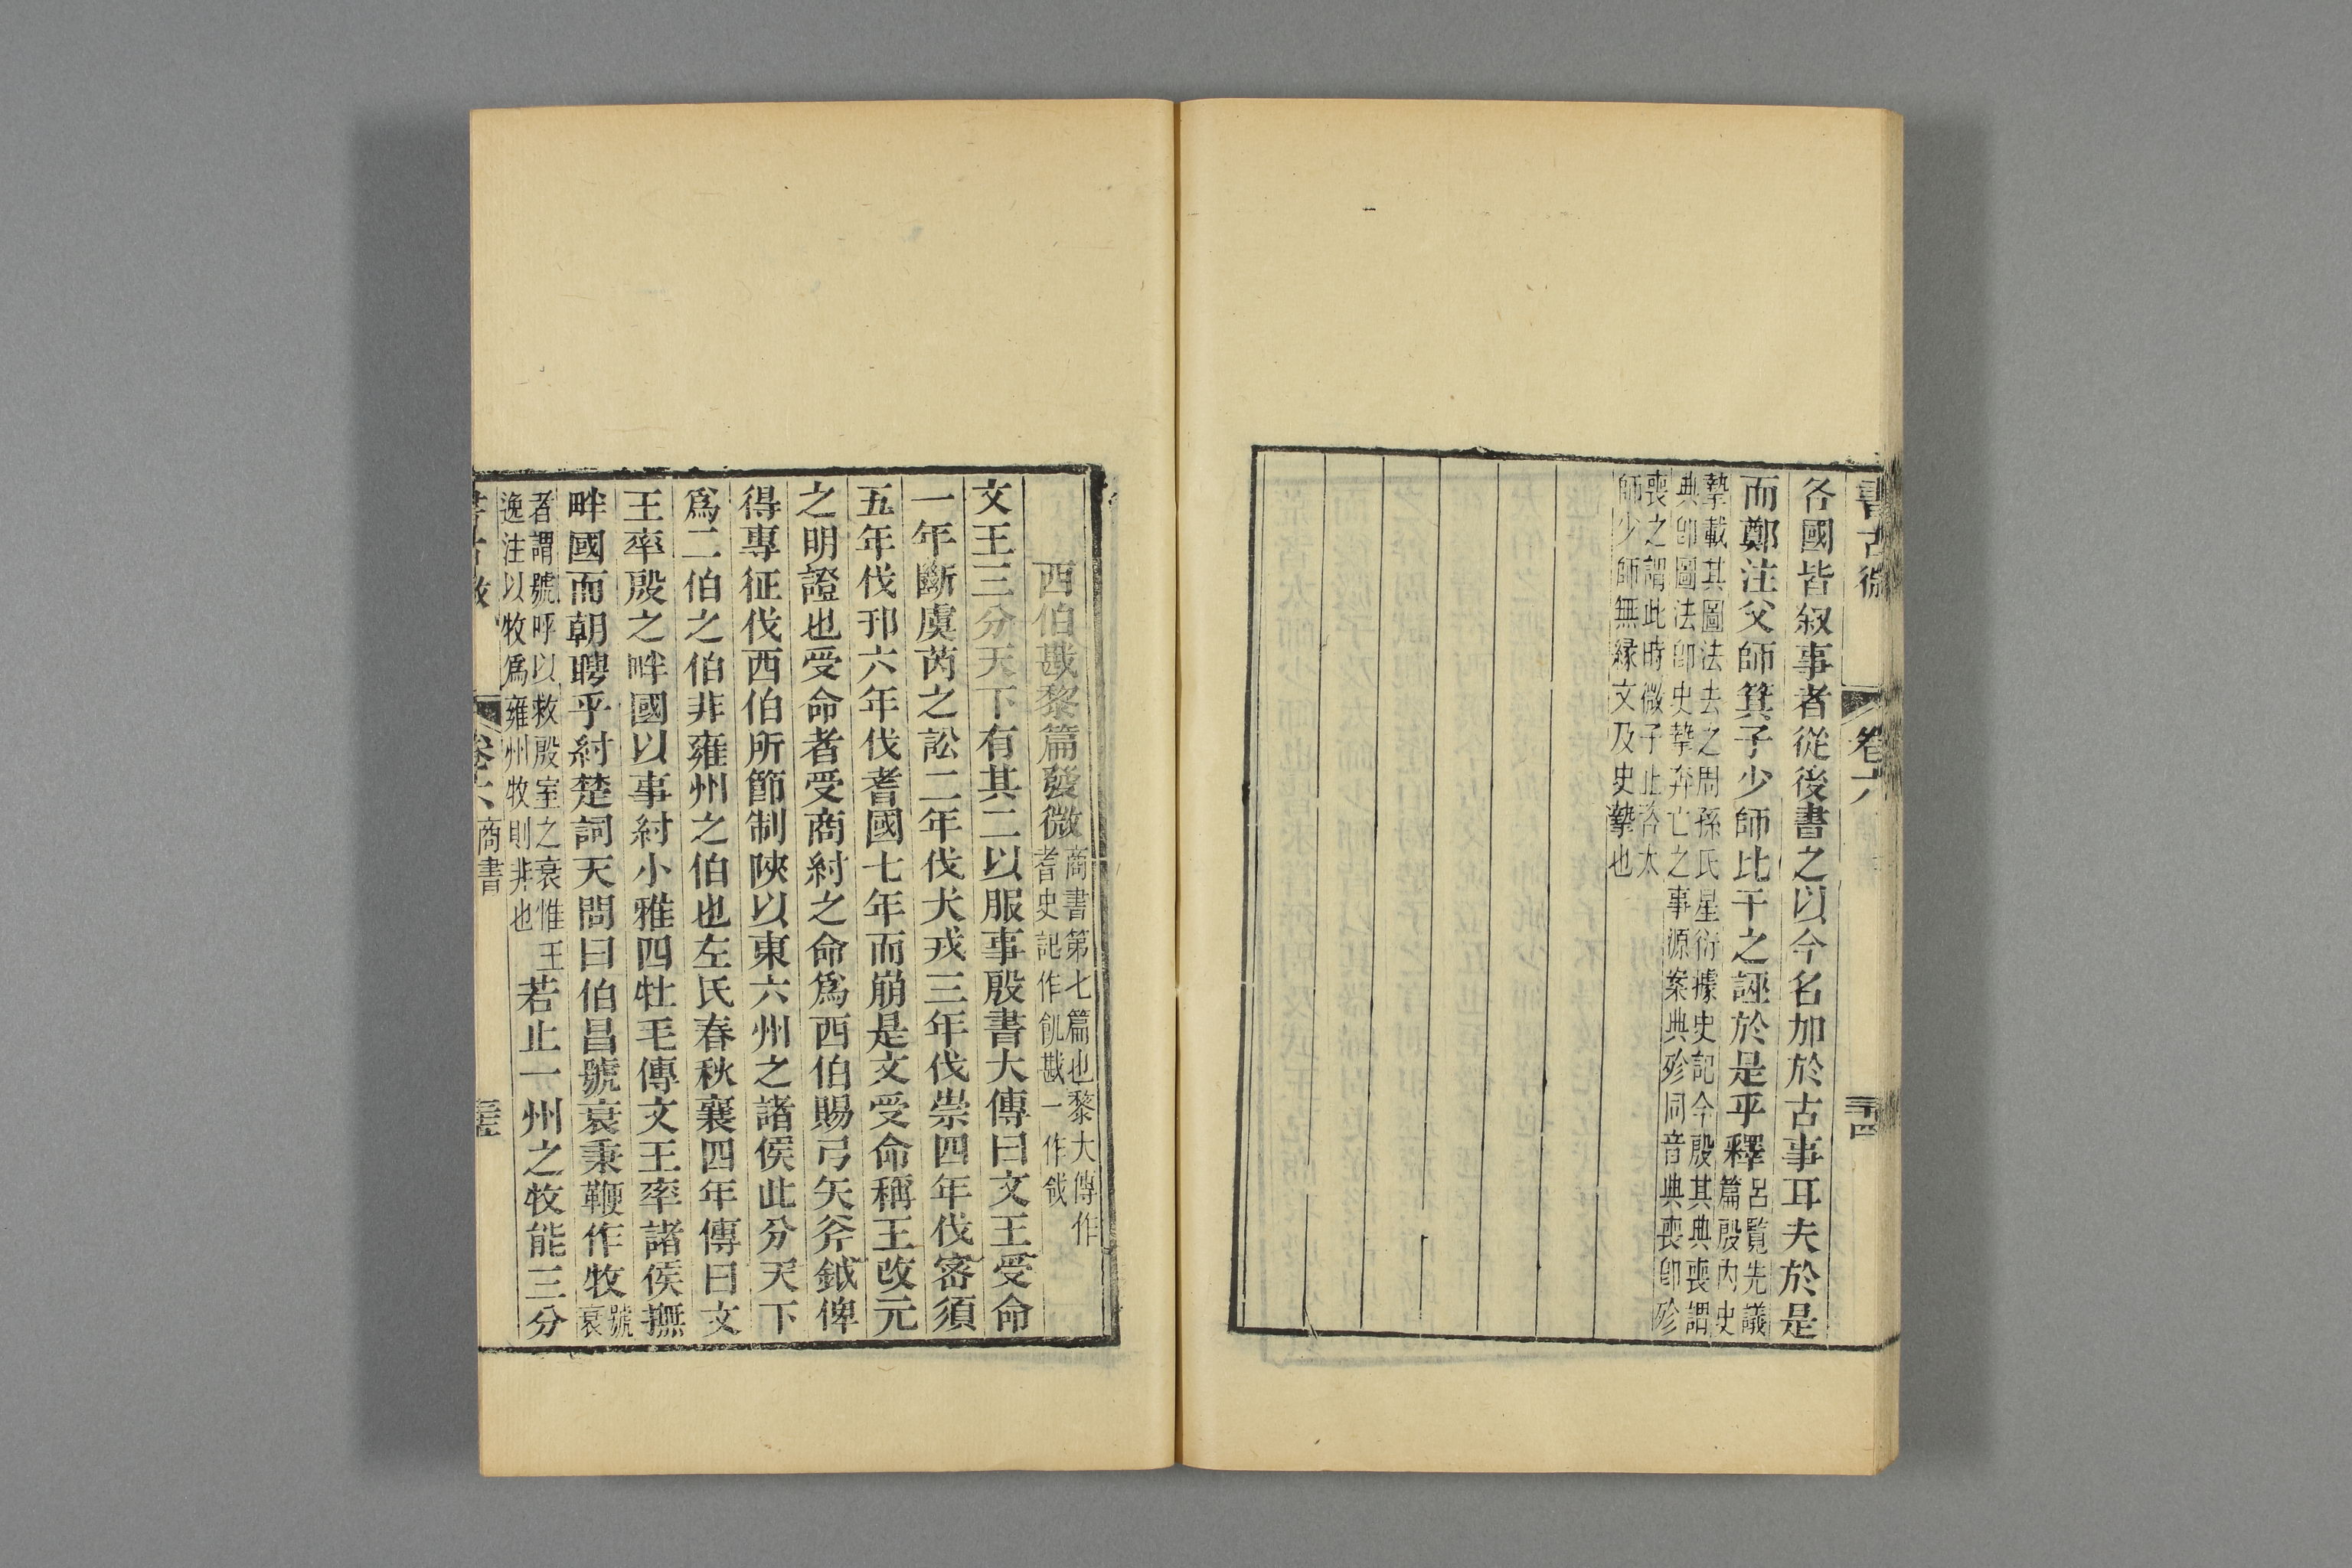 書古微
卷六
三十四
各國皆叙事者從後書之以今名加於古事耳夫於是
而鄭注父師箕子少師比干之誣於是乎釋呂覽先議篇殷內史
摯載其圖法去之周孫氏星衍據史記今殷其典喪謂
典卽圖法卽史摯奔亡之事源案典殄同音典喪卽殄
喪之謂此時微子止咨太
師少師無緣文及史摯也
西伯戡黎篇發微商書第七篇也黎大傳作
耆史記作飢戡一作㦰
文王三分天下有其二以服事殷書大傳曰文王受命
一年斷虞芮之訟二年伐犬戎三年伐崇四年伐密須
五年伐邘六年伐耆國七年而崩是文受命稱王改元
之明證也受命者受商紂之命爲西伯賜弓矢斧鉞俾
得專征伐西伯所節制陝以東六州之諸侯此分天下
爲二伯之伯非雍州之伯也左氏春秋襄四年傳曰文
王率殷之畔國以事紂小雅四牡毛傳文王率諸侯撫
畔國而朝聘乎紂楚詞天問曰伯昌號衰秉鞭作牧號衰
者謂號呼以救殷室之衰惟王
逸注以牧爲雍州牧則非也
若止一州之牧能三分
書古微
卷六
商書
三十五